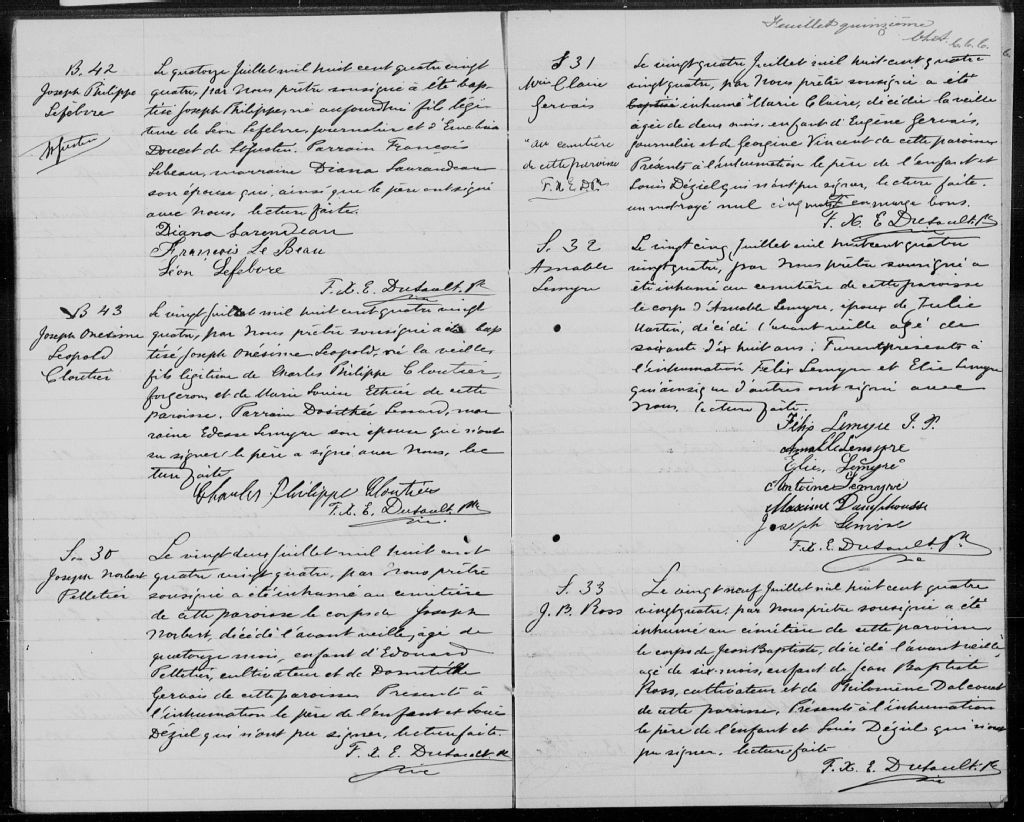 B. 42
Joseph Philippe
Lefebvre
St Justin
Le quatorze Juillet mil huit cent quatre vingt
quatre, par Nous prêtre soussigné a été bap-
tisé Joseph Philippe, né aujourd'hui fils légi-
time de Léon Lefebvre, journalier et d'Emelina
Doucet de St Justin. Parrain François
Lebeau, marraine Diana Laurandeau
son épouse qui, ainsi que le père ont signé
avec nous, lecture faite.
Diana Larendeau
François Le Beau
Léon Lefebvre
F. X. E. Dusault. Ptr
B 43
Joseph Onésime
Leopold
Cloutier
Le vingt juillet mil huit cent quatre vingt
quatre, par Nous prêtre soussigné a été bap
tisé Joseph Onésime Leopold, né la veille,
fils légitime de Charles Philippe Cloutier,
forgeron, et de Marie Louise Ethier de cette
paroisse. Parrain Dosithée Lessard, mar
raine Edesse Lemyre son épouse qui n'ont
su signer le père a signé avec Nous, lec
ture faite
Charles Philippe Cloutier
F. X. E. Dusault. Ptre
S. 30
Joseph Norbert
Pelletier
Le vingt deux juillet mil huit cent
quatre vingt quatre, par Nous prêtre
soussigné a été inhumé au cimetière
de cette paroisse le corps de Joseph
Norbert, décédé l'avant veille, agé de
quatorze mois, enfant d'Edouard
Pelletier, cultivateur et de Domitille
Gervais de cette paroisse. Présents à
l'inhumation le père de l'enfant et Louis
Déziel qui n'ont pu signer, lecture faite.
F. X. E. Dusault. Ptr
Feuillet quinzième
S 31
Mie Claire
Gervais
"au cimetière
de cette paroisse
F. X. E. D. Ptr
Le vingt quatre Juillet mil huit cent quatre
vingt quatre, par Nous prêtre soussigné a été
baptisé inhumé Marie Claire, décédée la veille
agée de deux mois, enfant d'Eugène Gervais,
Journalier et de Georgine Vincent de cette paroisse
Présents à l'inhumation le père de l'enfant et
Louis Déziel qui n'ont pu signer, lecture faite.
un mot rayé nul cinq mots en marge bons.
F. X. E. Dusault. Ptr
S. 32
Amable
Lemyre
Le vingt cinq Juillet mil huit cent quatre
vingt quatre, par Nous prêtre soussigné a
été inhumé au cimetière de cette paroisse
le corps d'Amable Lemyre, époux de Julie
Martin, décédé l'avant veille agé de
soixante dix huit ans. Furent présents à
l'inhumation Felix Lemyre et Elie Lemyre
qui ainsi que d'autres ont signé avec
nous, lecture faite.
Félix Lemyre
Amable Lemyre
Elie Lemyre
Antoine Lemyre
Maxime Damphousse
Joseph Lemire
F. X. E. Dusault. Ptr
S. 33
J. B. Ross
Le vingt neuf Juillet mil huit cent quatre
vingt quatre, par Nous prêtre soussigné a été
inhumé au cimetière de cette paroisse
le corps de Jean Baptiste, décédé l'avant veille,
agé de six mois, enfant de Jean Baptiste
Ross, cultivateur et de Philomène Dalcourt
de cette paroisse. Présents à l'inhumation
le père de l'enfant et Louis Déziel qui n'ont
pu signer, lecture faite
F. X. E. Dusault. Ptr